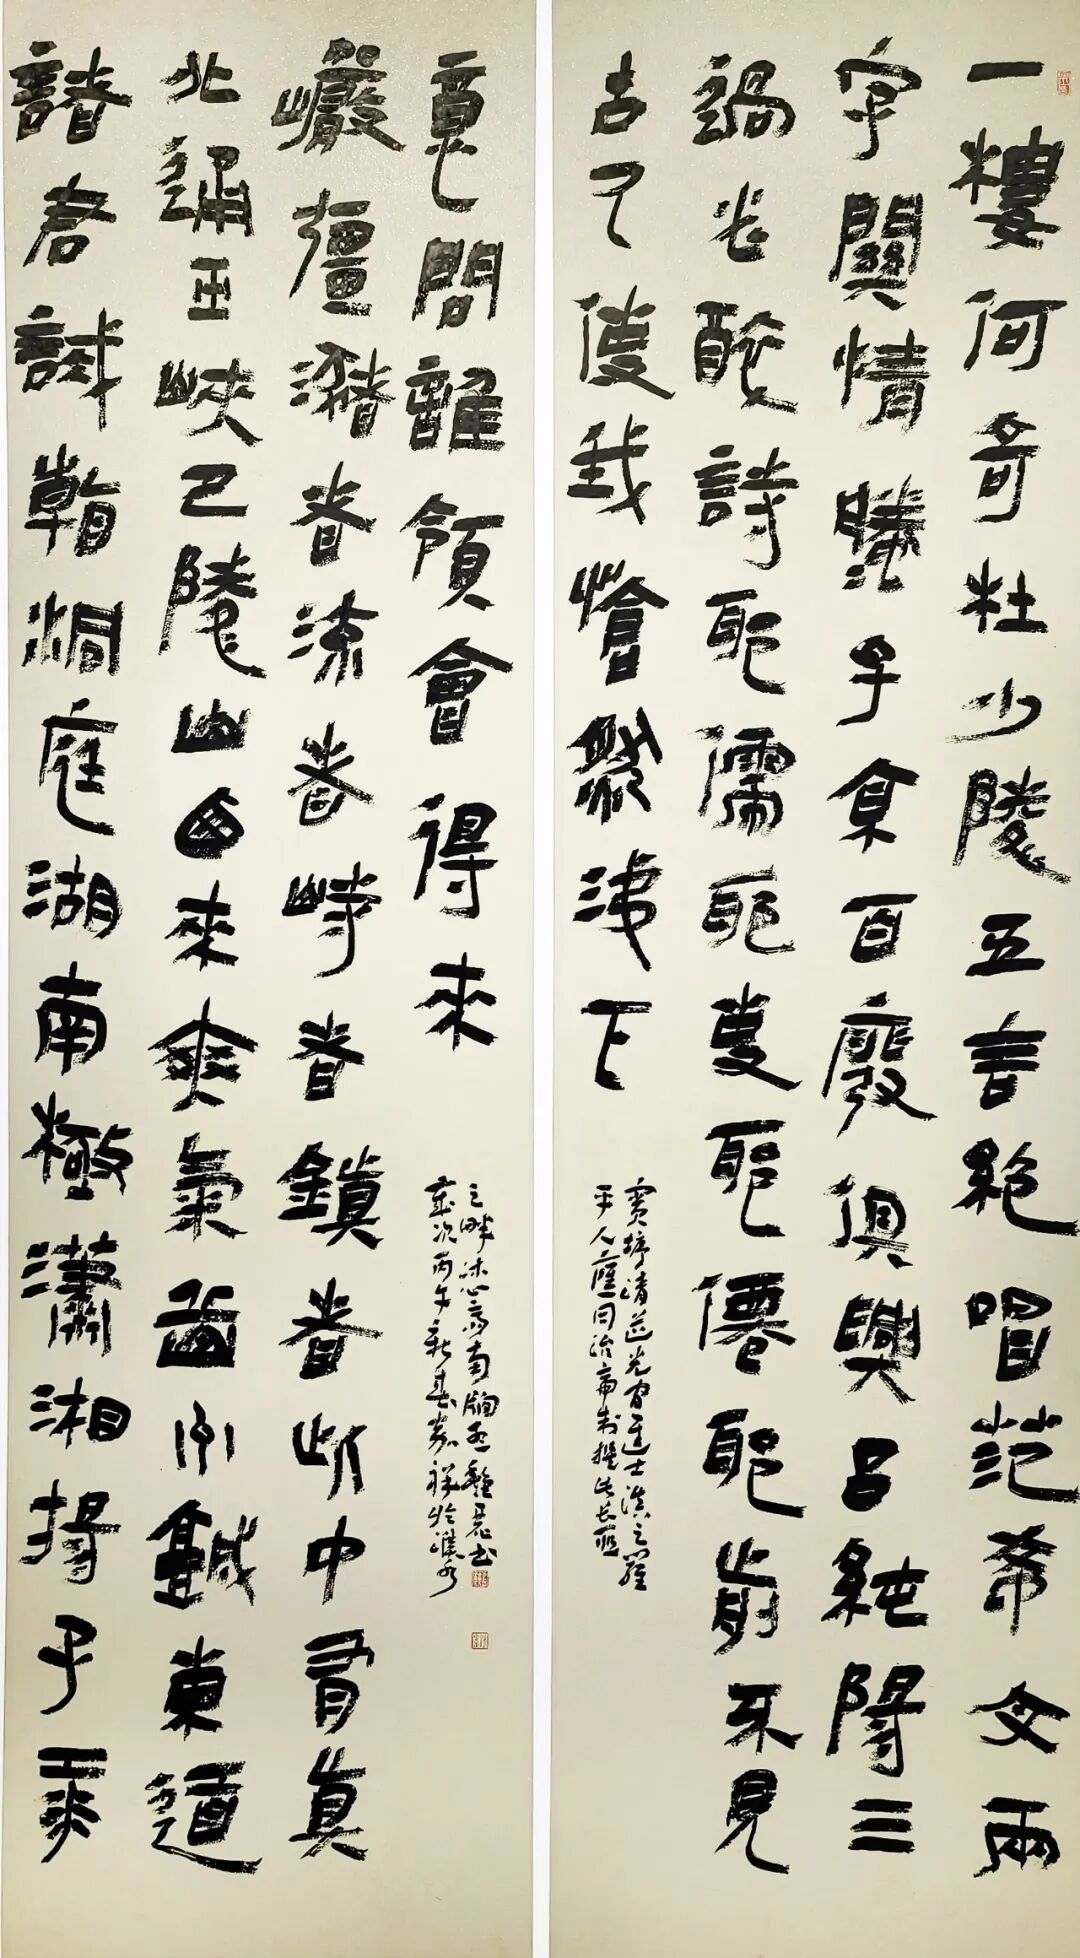 一樓何奇杜少陵五言絕唱范希文兩
字關情滕子京百廢俱興呂純陽三
過必醉詩耶儒耶吏耶僊耶前不見
古人使我愴然涕下
竇垿清道光間進士滇之羅
平人應同治帝制撰此長聯
諸君試看洞庭湖南極瀟湘揚子江
北通巫峽巴陵山西來爽氣嶽州城東道
巖疆瀦者流者峙者鎮者此中有真
意問誰領會得來
歲次丙午新春祥於濰水
之畔沐心齋南牖書